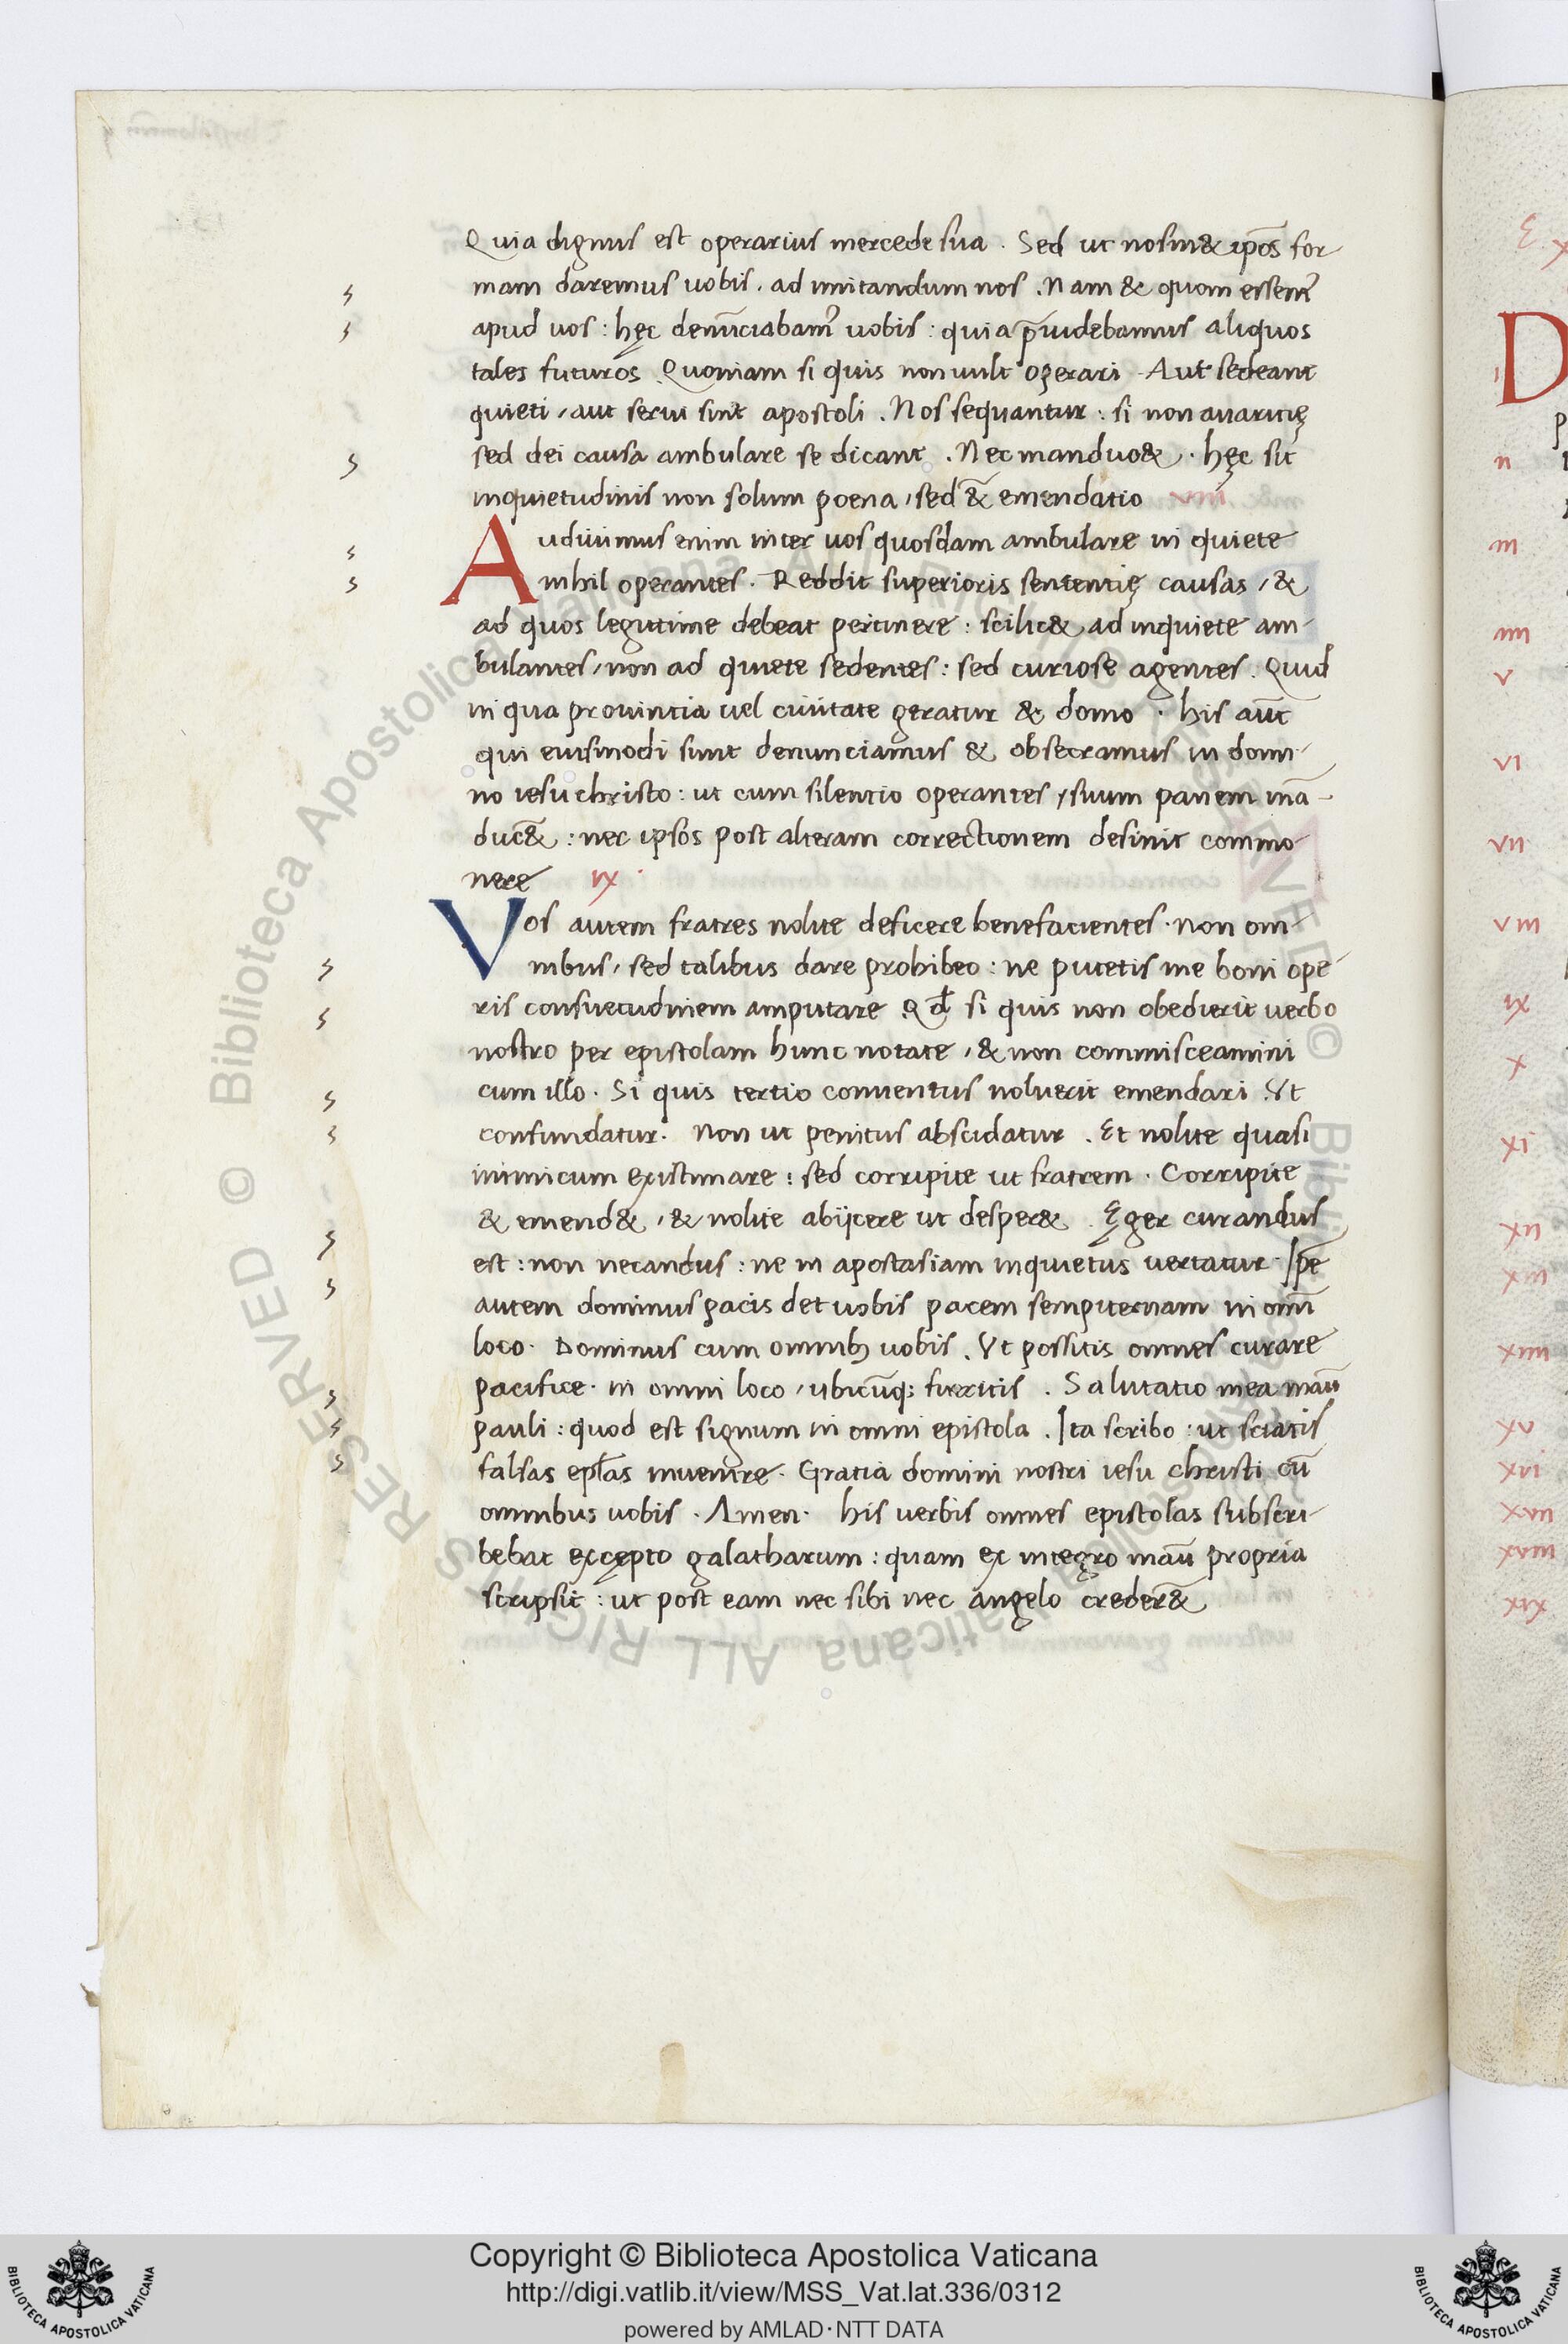 Quia dignus est operarius mercede sua . Sed ut nosm& ip̄os for
mam daremus uobis . ad imitandum nos . Nam & quom essem᷒
apud uos : hęc denūciabam᷒ uobis : quia p̄uidebamus aliquos
tales futuros . Quoniam si quis non uult operari . Aut sedeant
quieti , aut serui sint apostoli . Nos sequantur : si non auaritię
sed dei causa ambulare se dicant . Nec manduc& . hęc sit
inquietudinis non solum poena , sed & emendatio
Audiuimus enim inter uos quosdam ambulare in quiete
nihil operantes . Reddit superioris sententię causas , &
ad quos legitime debeat pertinere : scilic& ad inquiete am-
bulantes , non ad quiete sedentes : sed curiose agentes . Quid
in qua prouintia uel ciuitate geratur & domo . his aūt
qui eiusmodi sunt denunciamus & obsecramus in domi-
no iesu christo : ut cum silentio operantes , suum panem mā-
duc&̄ : nec ipsos post alteram correctionem desinit commo-
nere IX
Vos autem fratres nolite deficere benefacientes . non om-
nibus , sed talibus dare prohibeo : ne putetis me boni ope-
ris consuetudinem amputare . Qđ si quis non obedierit uerbo
nostro per epistolam hunc notate , & non commisceamini
cum illo . Si quis tertio conuentus noluerit emendari . Vt
confundatur . Non ut penitus abscidatur . Et nolite quasi
inimicum existimare : sed corripite ut fratrem . Corripite
& emend& , & nolite abijcere ut desper& . Ęger curandus
est : non necandus : ne in apostasiam inquietus uertatur . Ip̄e
autem dominus pacis det uobis pacem sempiternam in om̄i
loco . Dominus cum omnib; uobis . Vt possitis omnes curare
pacifice . in omni loco , ubicūq; fueritis . Salutatio mea manū
pauli : quod est signum in omni epistola . Ita scribo : ut sciatis
falsas ep̄las inuenire . Gratia domini nostri iesu christi cū
omnibus uobis . Amen . his uerbis omnes epistolas subscri-
bebat excępto galatharum : quam ex integro manū propria
scripsit : ut post eam nec sibi nec angelo creder&
D
n
m
IIII
V
VI
VII
VIII
IX
X
XI
XII
XIII
XIIII
XV
XVI
XVII
XVIII
XIX
© Biblioteca Apostolica Vaticana ALL RIGHTS RESERVED
Copyright © Biblioteca Apostolica Vaticana
http://digi.vatlib.it/view/MSS_Vat.lat.336/0312
powered by AMLAD·NTT DATA
BIBLIOTECA APOSTOLICA VATICANA
BIBLIOTECA APOSTOLICA VATICANA